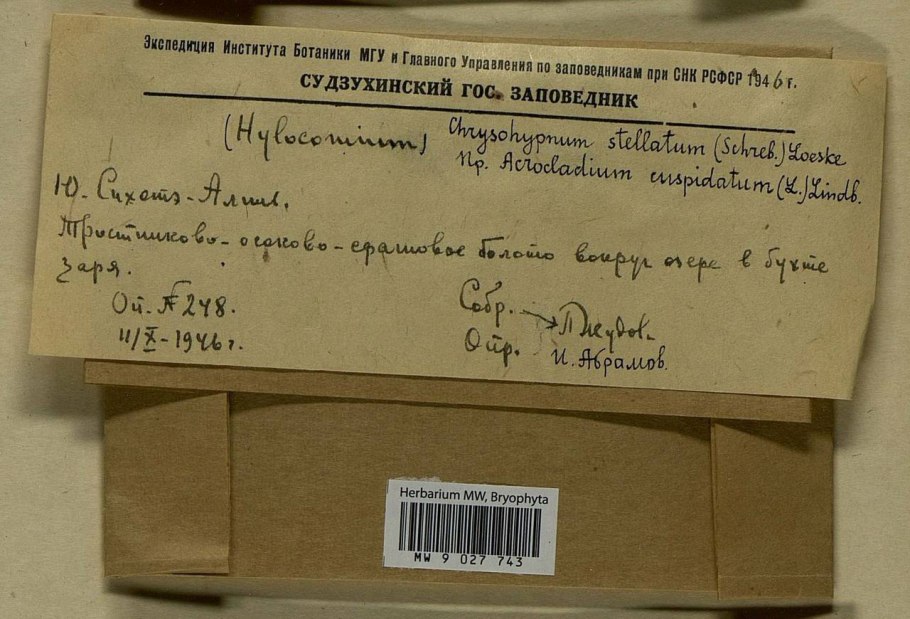 Экспедиция Института Ботаники МГУ и Главного Управления по заповедникам при СНК РСФСР 1946 г.
СУДЗУХИНСКИЙ ГОС. ЗАПОВЕДНИК
(Hylocomium) Chrysohypnum stellatum (Schreb.) Loeske
Пр. Acrocladium cuspidatum (L.) Lindb.
Ю. Сихотэ-Алинь.
Тростниково-осоково-сфагновое болото вокруг озера в бухте
Заря.
Оп. № 248.
11/X-1946 г.
Собр.
Опр. И. Абрамов.
Herbarium MW, Bryophyta
MW 9 027 743